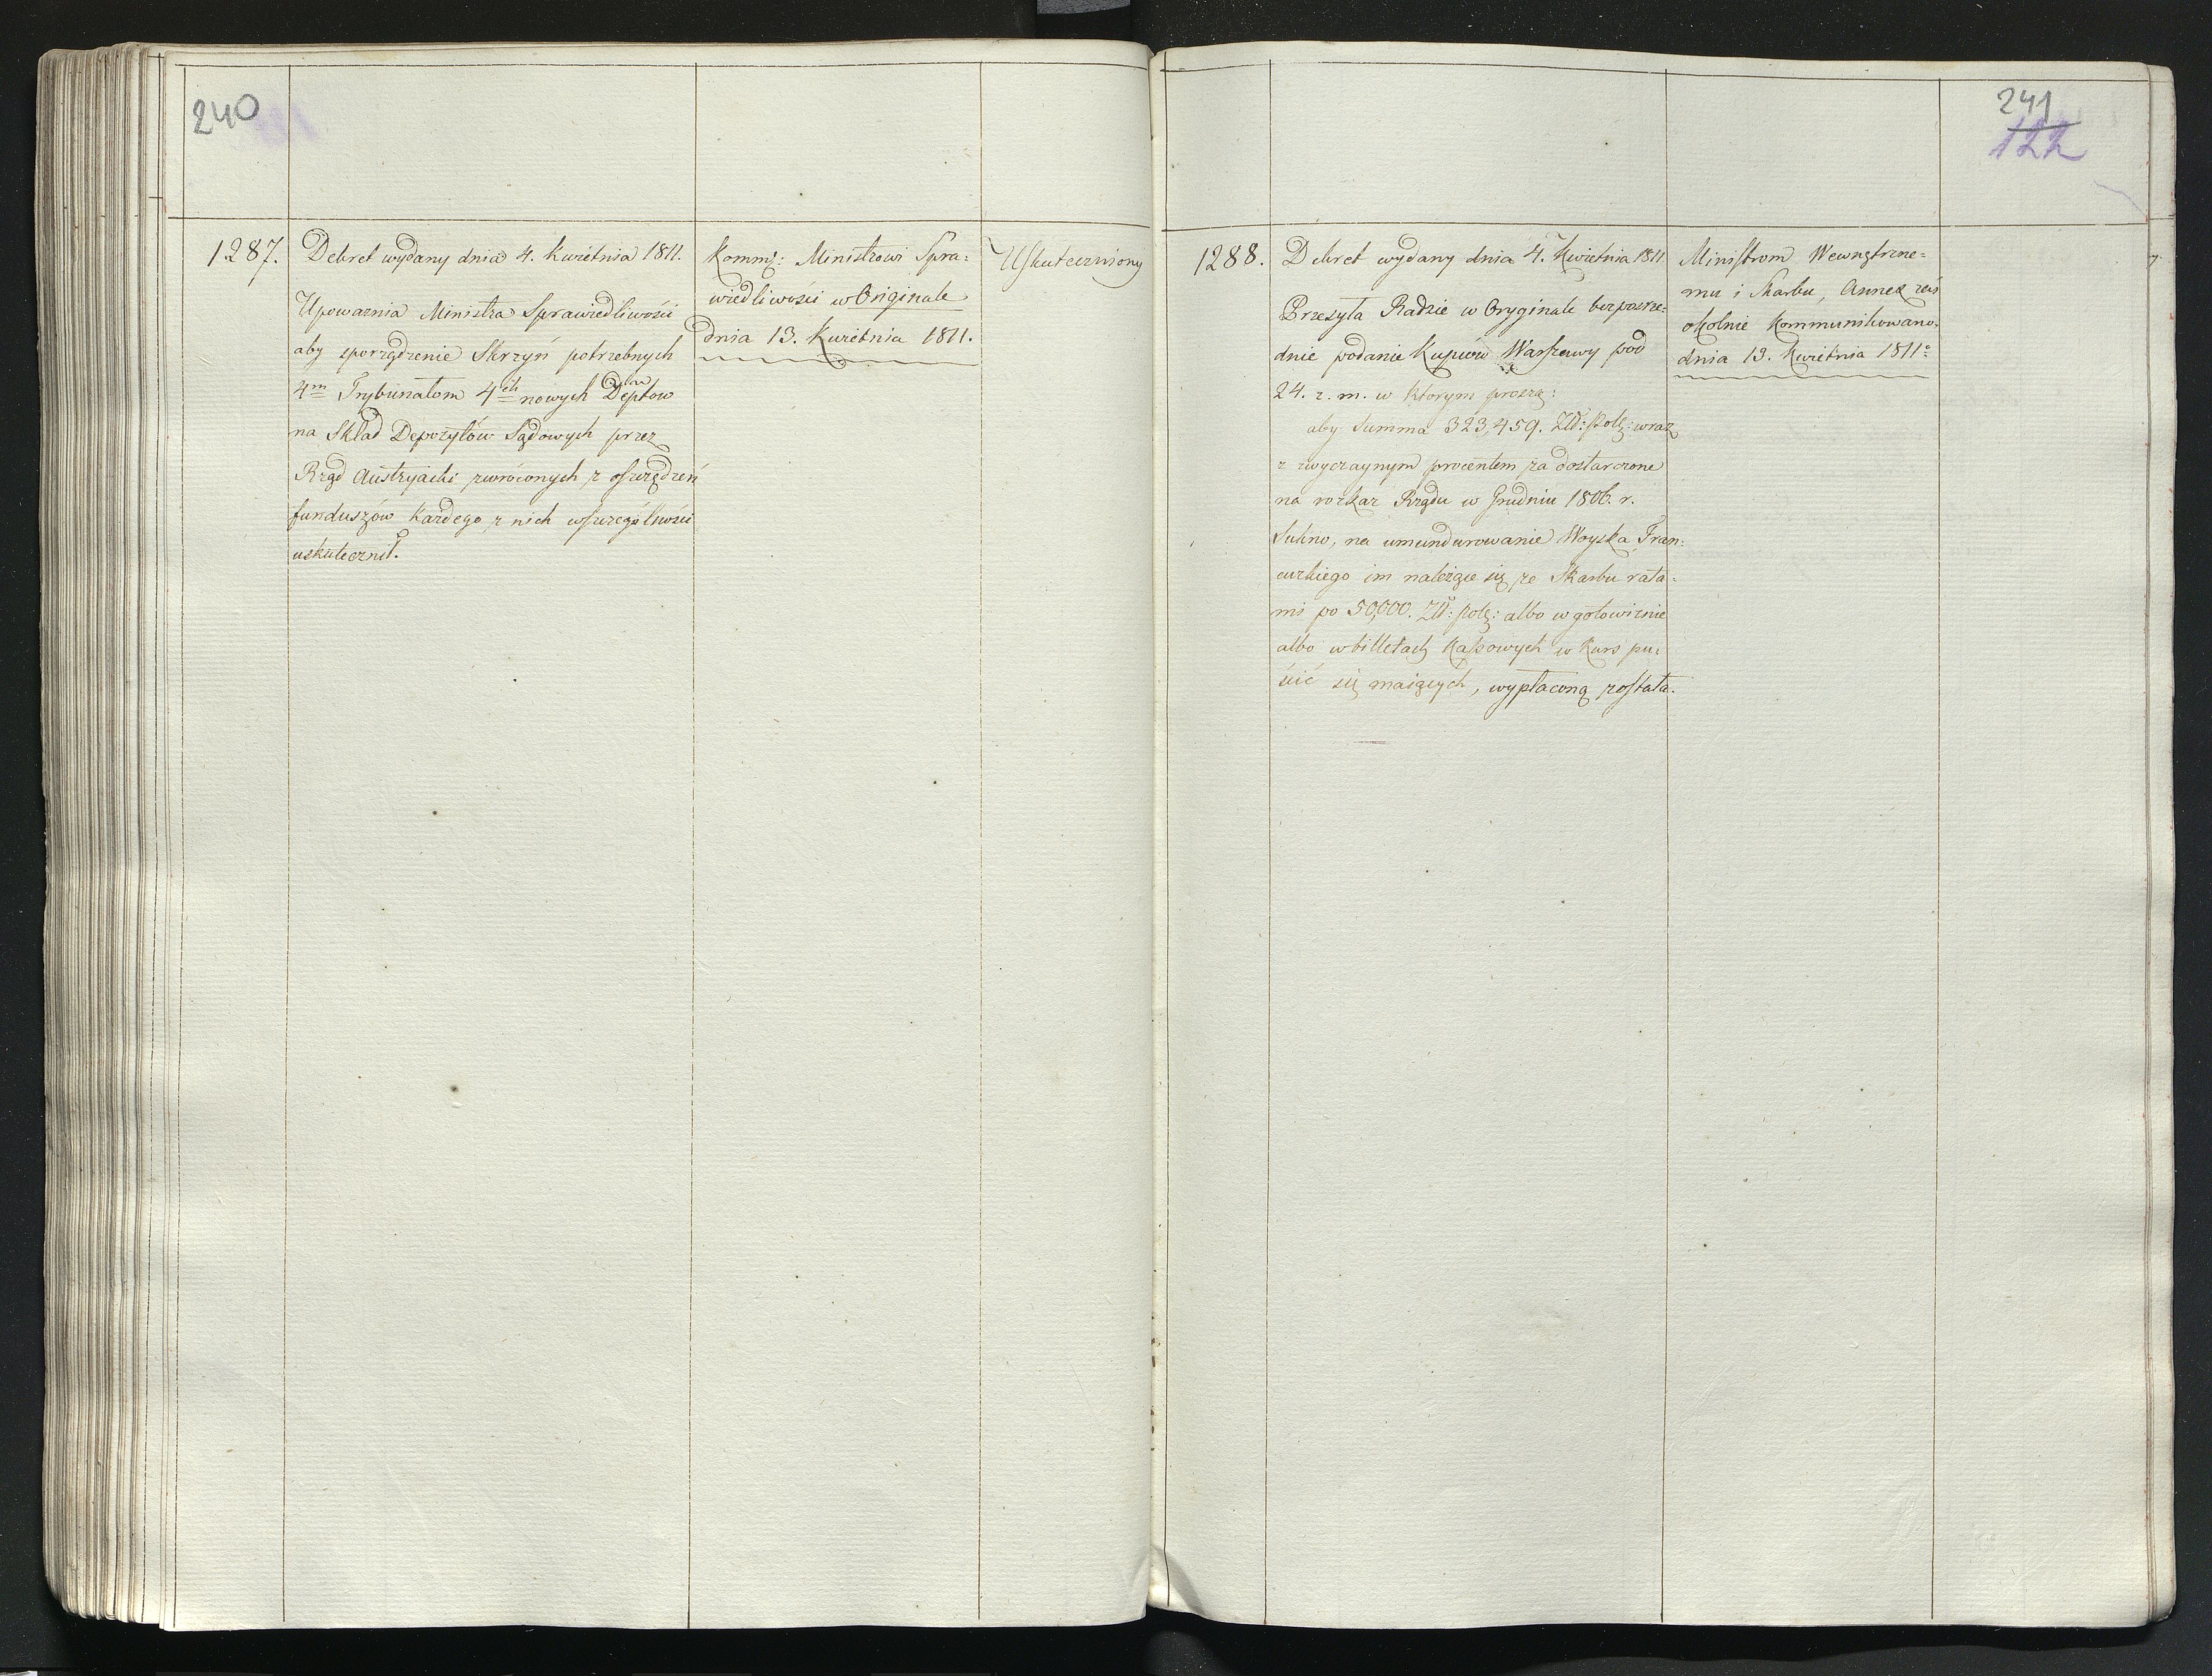 240
1287.
Dekret wydany dnia 4. Kwietnia 1811.
Upoważnia Ministra Sprawiedliwości
aby sporządzenie Skrzyń potrzebnych
4m Trybunałom 4ch nowych Deptow
na Skład Depozytów Sądowych przez
Rząd Austryacki zwróconych z oszczędzeń
funduszów każdego z nich wszczególności
uskutecznił.
Kommq: Ministrowi Spra:
wiedliwości w Originale
dnia 13. Kwietnia 1811.
Uskuteczniony
241
122
1288.
Dekret wydany dnia 4. Kwietnia 1811
Przesyła Radzie w Oryginale bezpośre:
dnie podanie Kupców Warszawy pod
24. z. m. w którym proszą:
aby Summa 323,459. Zł: polq: wraz
z zwyczaynym procentem za dostarczone
na rozkaz Rządu w Grudniu 1806. r.
Sukno, na umundurowanie Woyska Fran:
cuzkiego im należące się ze Skarbu rata:
mi po 50,000. Zł: polq: albo w gotowiznie
albo w billetach Kassowych w Kurs pu:
ścić się maiących, wypłaconą została.
Ministrom Wewnętrzne=
mu i Skarbu, Annex zaś
okolnie Kommunikowano.
dnia 13. Kwietnia 1811.